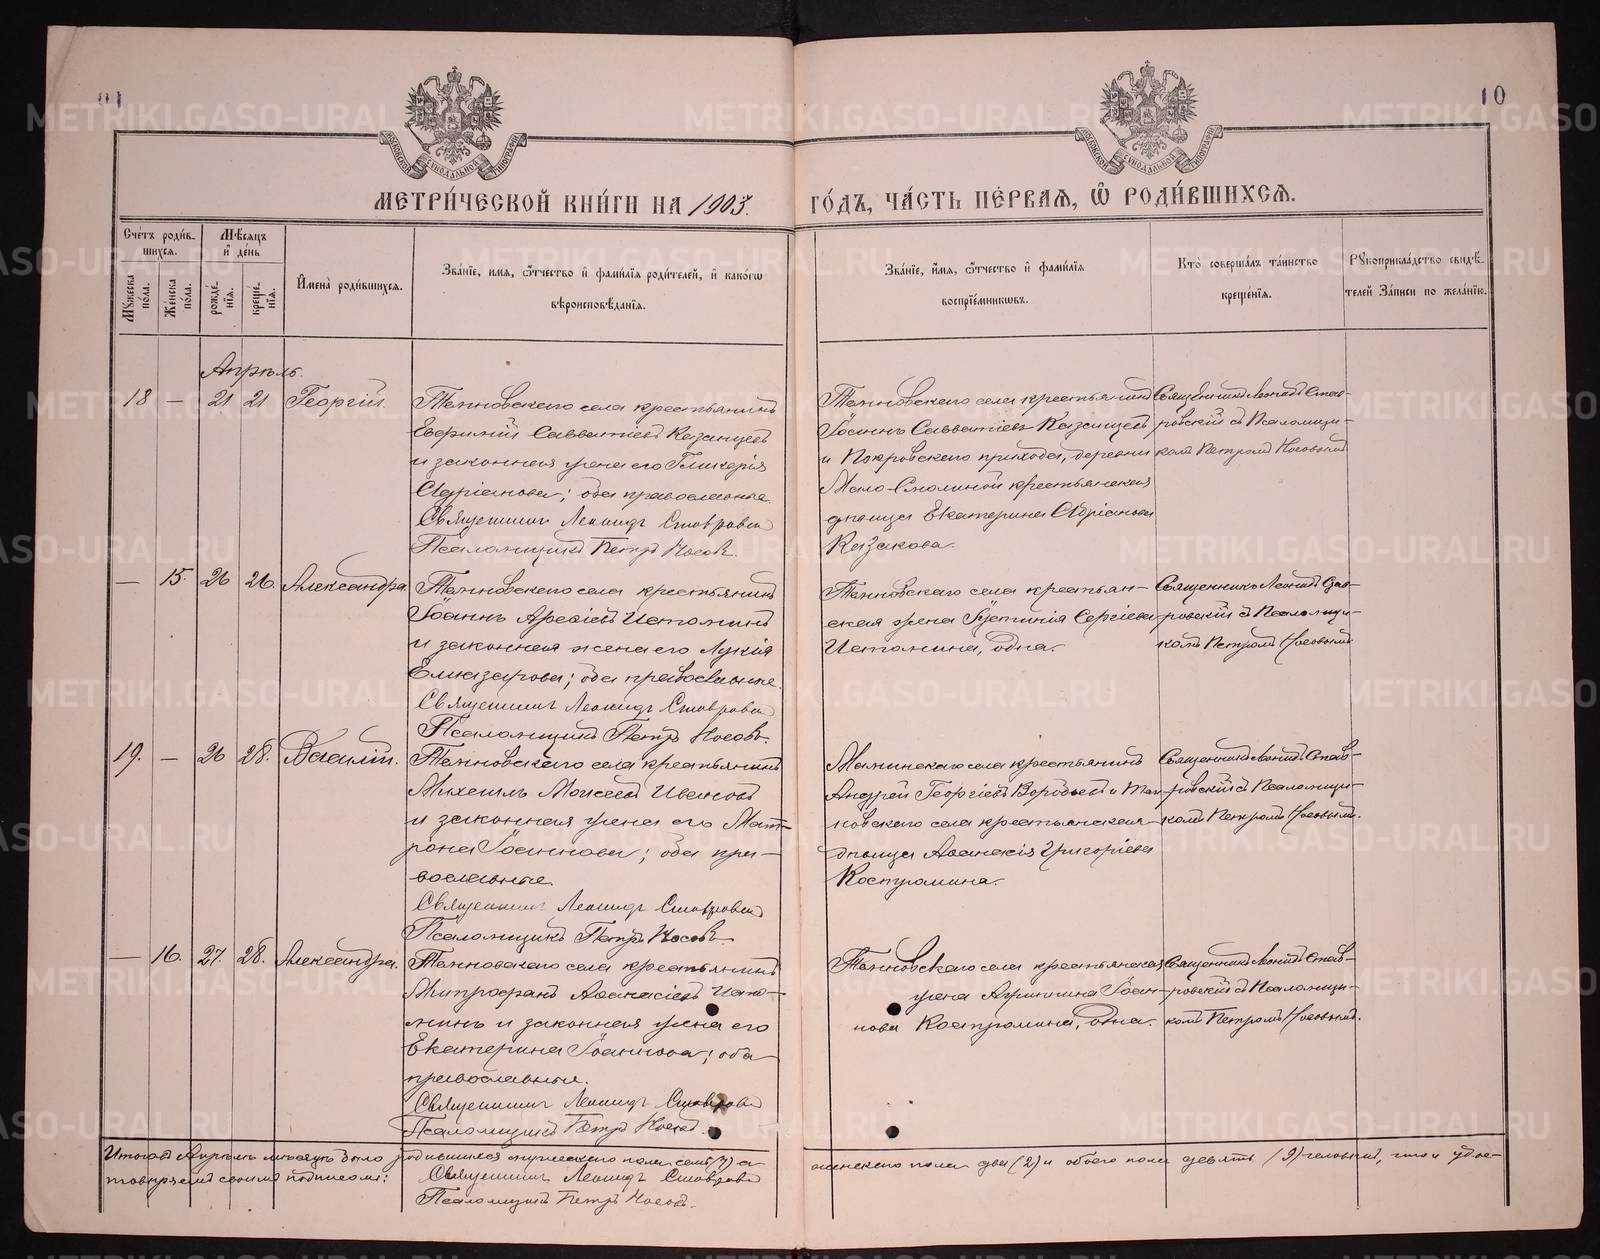 10
МЕТРИ́ЧЕСКОЙ КНИ́ГИ НА 1903.
ГО́ДЪ, ЧА́СТЬ ПЕ́РВАЯ, Ѡ РОДИ́ВШИХСЯ.
Сче́тъ роди́в-
шихся.
Мꙋжеска по́ла.
Же́нска по́ла.
Мѣ́сяцъ и де́нь
рожде́-
нія.
креще́-
нія.
Имена̀ роди́вшихся.
Зва́ніе, имя, ѻтчество и фами́лія роди́телей, и како́гѡ
вѣроисповѣ́данія.
Зва́ніе, имя, ѻтчество и фами́лія
воспріе́мниковъ.
Кто̀ соверша́лъ та́инство
креще́нія.
Рꙋкоприкла́дство свидѣ́-
телей за́писи по жела́нію.
Апрѣль.
18 — 21 21 Георгій.
Темновскаго села крестьянинъ
Савватіевъ Казанцевъ
и законная жена его Гликерія
Адріанова; оба православные.
Священникъ Леонидъ Ставровскій
Псаломщикъ Петръ Носовъ.
села крестьянинъ
Іоаннъ Савватіевъ Казанцевъ
и Покровскаго прихода, деревни
Мало-Смолиной крестьянская
дѣвица Екатерина Адріанова
Казакова.
Священникъ Леонидъ Став-
ровскій съ Псаломщи-
комъ Петромъ Носовымъ
— 15. 26 26. Александра.
села крестьянинъ
Іоаннъ Истоминъ
и законная жена его Лукія
Елеазарова; оба православные.
Священникъ Леонидъ Ставровскій
Псаломщикъ Петръ Носовъ.
села крестьян-
ская жена Іустинія Сергіева
Истомина, одна.
Священникъ Леонидъ Став-
ровскій съ Псаломщи-
комъ Петромъ Носовымъ
19. — 26 28. Василій.
села крестьянинъ
Михаилъ Моисеевъ Ивановъ
и законная жена его Мат-
рона Іоаннова; оба пра-
вославные.
Священникъ Леонидъ Ставровскій
Псаломщикъ Петръ Носовъ
села крестьянинъ
Андрей Георгіевъ Воробьевъ и
новскаго села крестьянская
дѣвица Аѳанасія Григоріева
Костромина.
Священникъ Леонидъ Став-
ровскій съ Псаломщи-
комъ Петромъ Носовымъ.
— 16. 27. 28. Александра.
села крестьянинъ
Митрофанъ Аѳанасіевъ Исто-
минъ и законная жена его
Екатерина Іоаннова; оба
православные.
Священникъ Леонидъ Ставровскій
Псаломщикъ Петръ Носовъ.
села крестьянская
жена Агриппина Іоан-
нова Костромина, одна.
Священникъ Леонидъ Став-
ровскій съ Псаломщи-
комъ Петромъ Носовымъ.
Итого въ Апрѣлѣ мѣсяцѣ было родившихся мужескаго пола семь (7) а
женскаго пола два (2) и обоего пола девять (9) человѣкъ, что и удос-
товѣряемъ своимъ подписомъ:
Священникъ Леонидъ Ставровскій
Псаломщикъ Петръ Носовъ.
METRIKI.GASO-URAL.RU